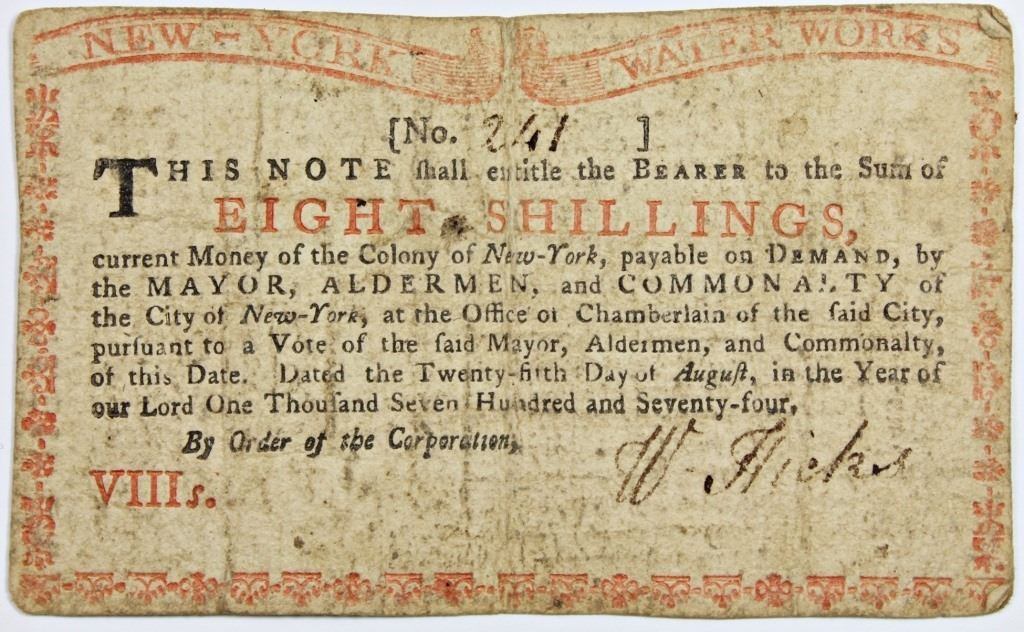 NEW-YORK WATER WORKS
[No. 241 ]
THIS NOTE ſhall entitle the BEARER to the Sum of
EIGHT SHILLINGS,
current Money of the Colony of New-York, payable on DEMAND, by
the MAYOR, ALDERMEN, and COMMONALTY of
the City of New-York, at the Office of Chamberlain of the ſaid City,
purſuant to a Vote of the ſaid Mayor, Aldermen, and Commonalty,
of this Date. Dated the Twenty-fifth Day of Auguſt, in the Year of
our Lord One Thouſand Seven Hundred and Seventy-four,
By Order of the Corporation,
W. Hicks
VIIIs.